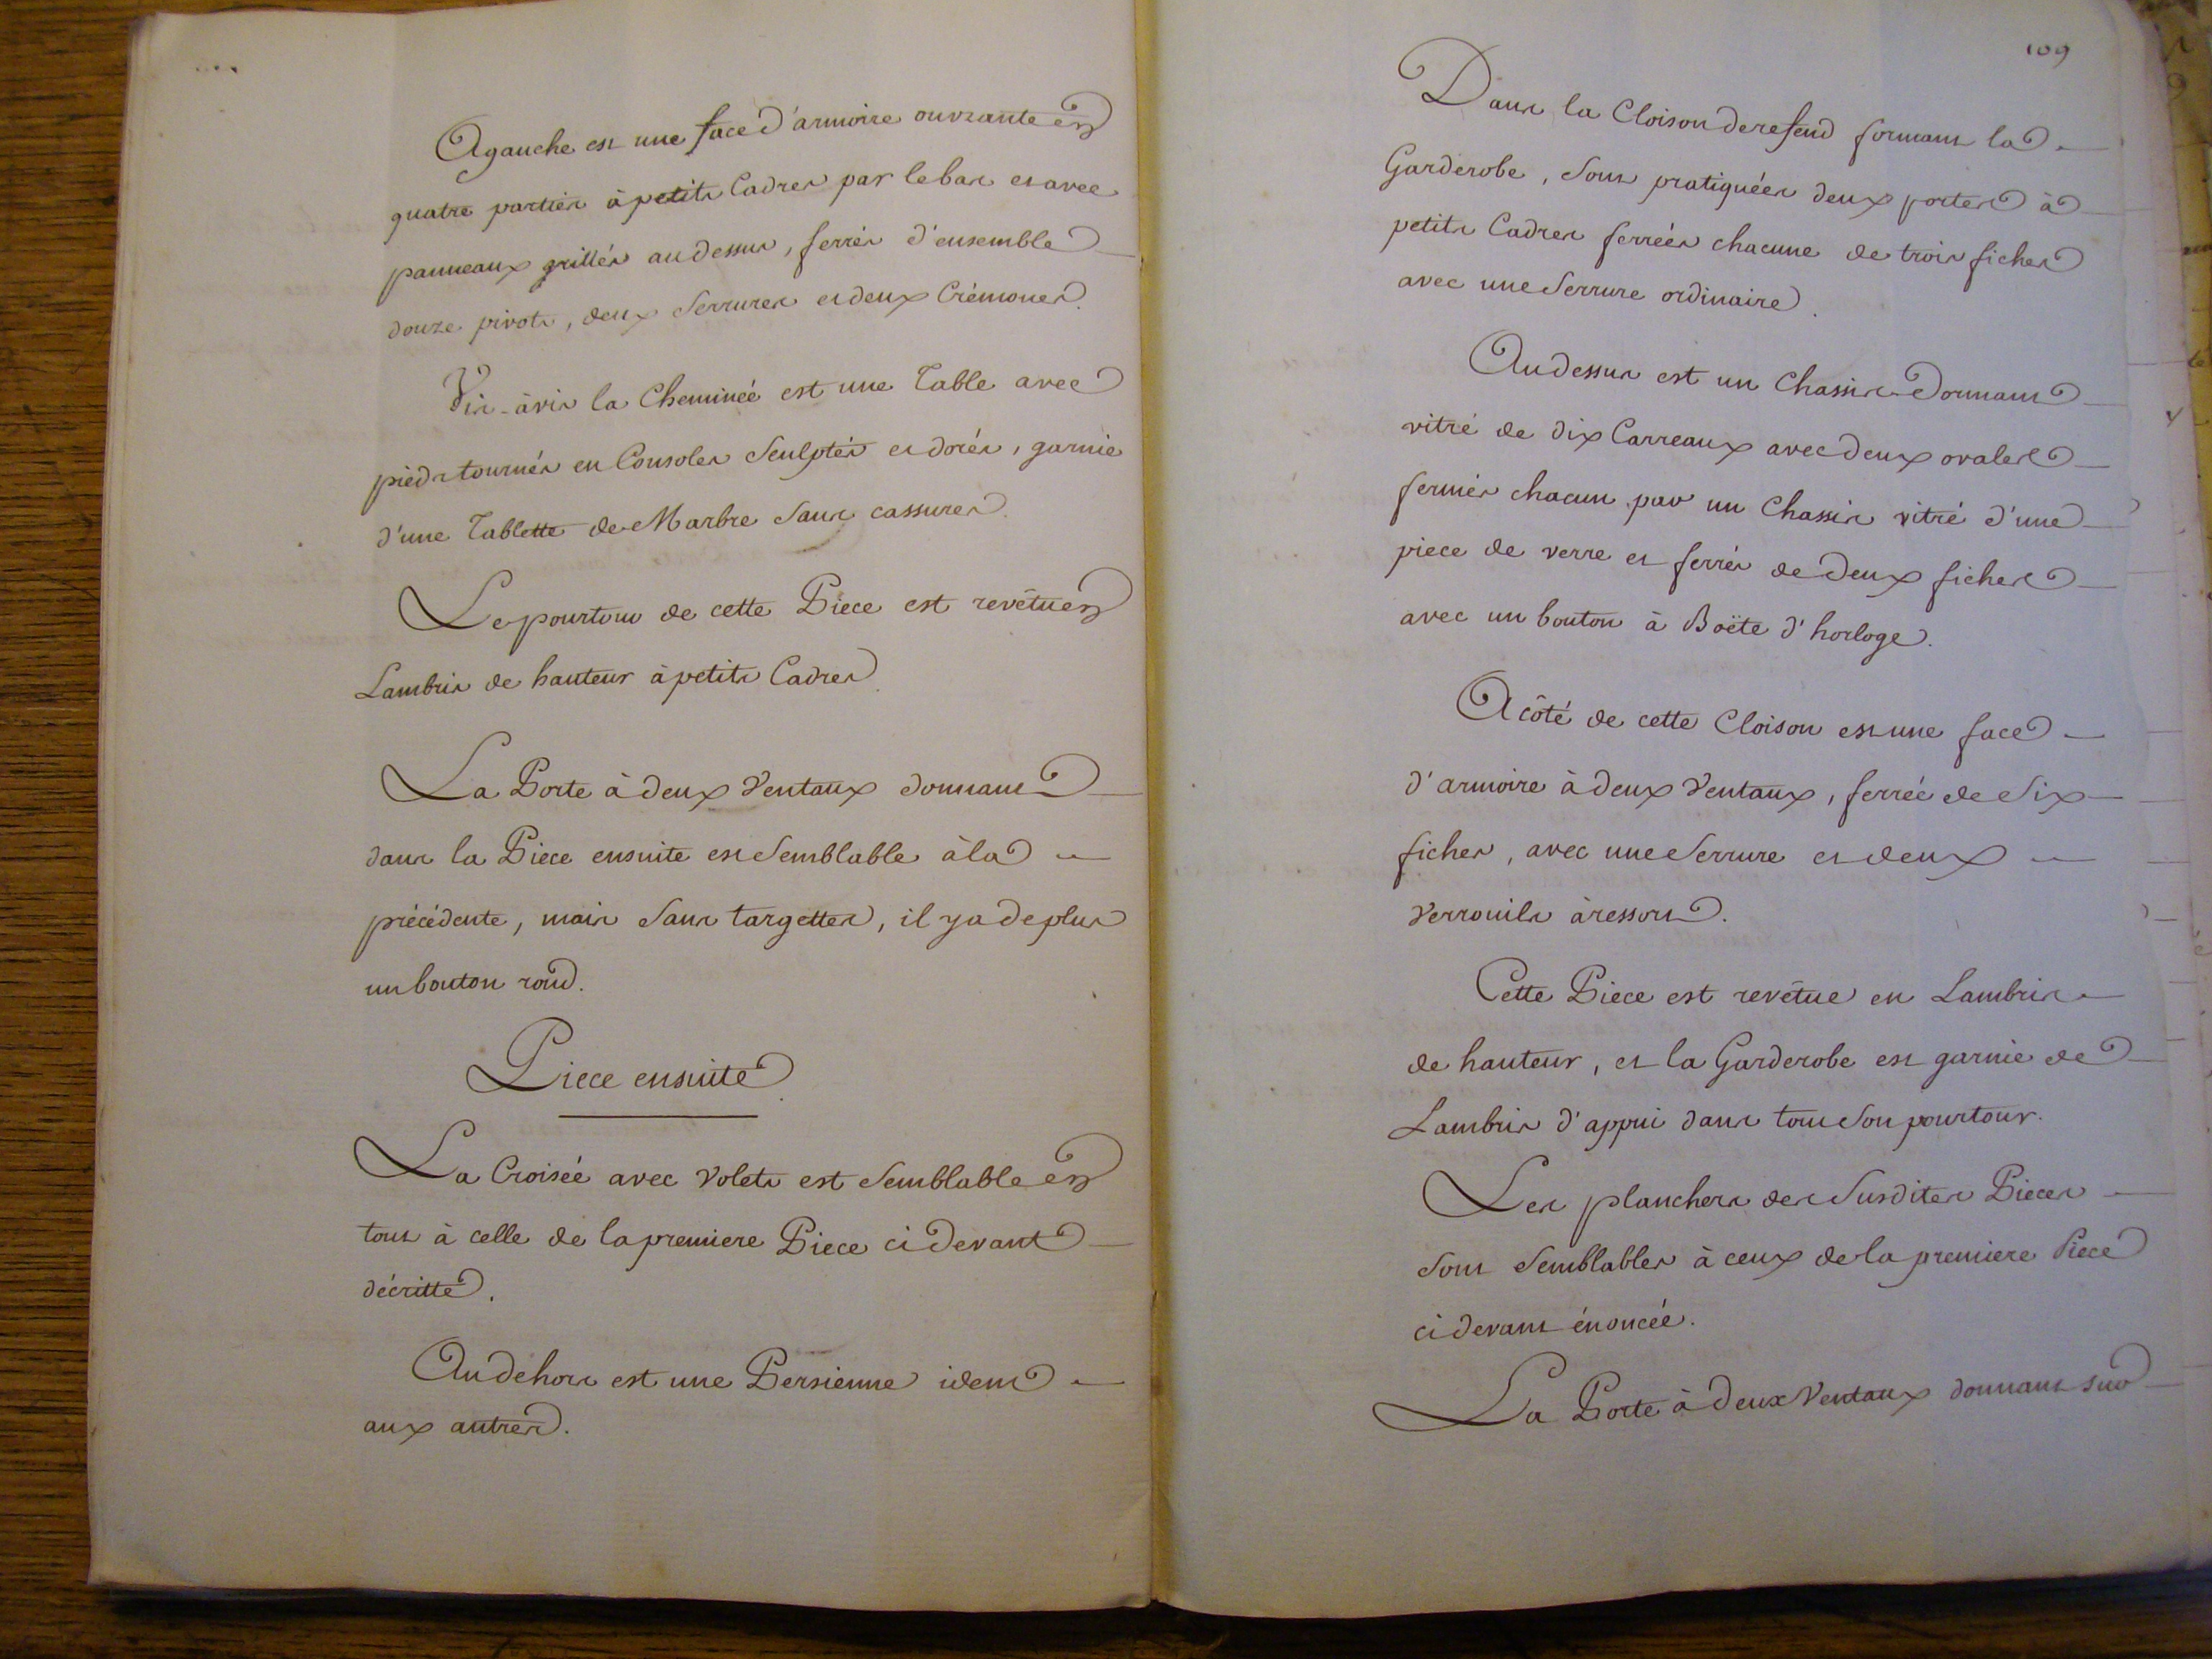 A gauche est une face d'armoire ouvrante en
quatre parties à petits Cadres par le bas et avec
panneaux grillés au dessus, ferrés d'ensemble
douze pivots, deux Serrures et deux Crémones.
Vis-àvis la Cheminée est une Table avec
pieds tournés en Consoles Sculptés et dorés, garnie
d'une Tablette de Marbre Sans cassures.
Le pourtour de cette Piece est revêtu en
Lambris de hauteur à petits Cadres.
La Porte à deux Ventaux donnant
dans la Piece ensuite est Semblable à la
précédente, mais Sans targettes, il y a de plus
un bouton rond.
Piece ensuite.
La Croisée avec Volets est Semblable en
tout à celle de la premiere Piece ci devant
décritte.
Au dehors est une Persienne idem
aux autres.
109
Dans la Cloison de refend formant la
Garderobe, Sont pratiquées deux portes à
petits Cadres ferrées chacune de trois fiches
avec une Serrure ordinaire.
Au dessus est un Chassis Dormant
vitré de dix Carreaux avec deux ovales
fermés chacun par un Chassis vitré d'une
piece de verre et ferrés de deux fiches
avec un bouton à Boëte d'horloge.
A côté de cette Cloison est une face
d'armoire à deux Ventaux, ferrée de Six
fiches, avec une Serrure et deux
Verrouils à ressort.
Cette Piece est revêtue en Lambris
de hauteur, et la Garderobe est garnie de
Lambris d'appui dans tout Son pourtour.
Les planchers des Susdites Pieces
Sont Semblables à ceux de la premiere Piece
ci devant énoncée.
La Porte à deux Ventaux donnant sur